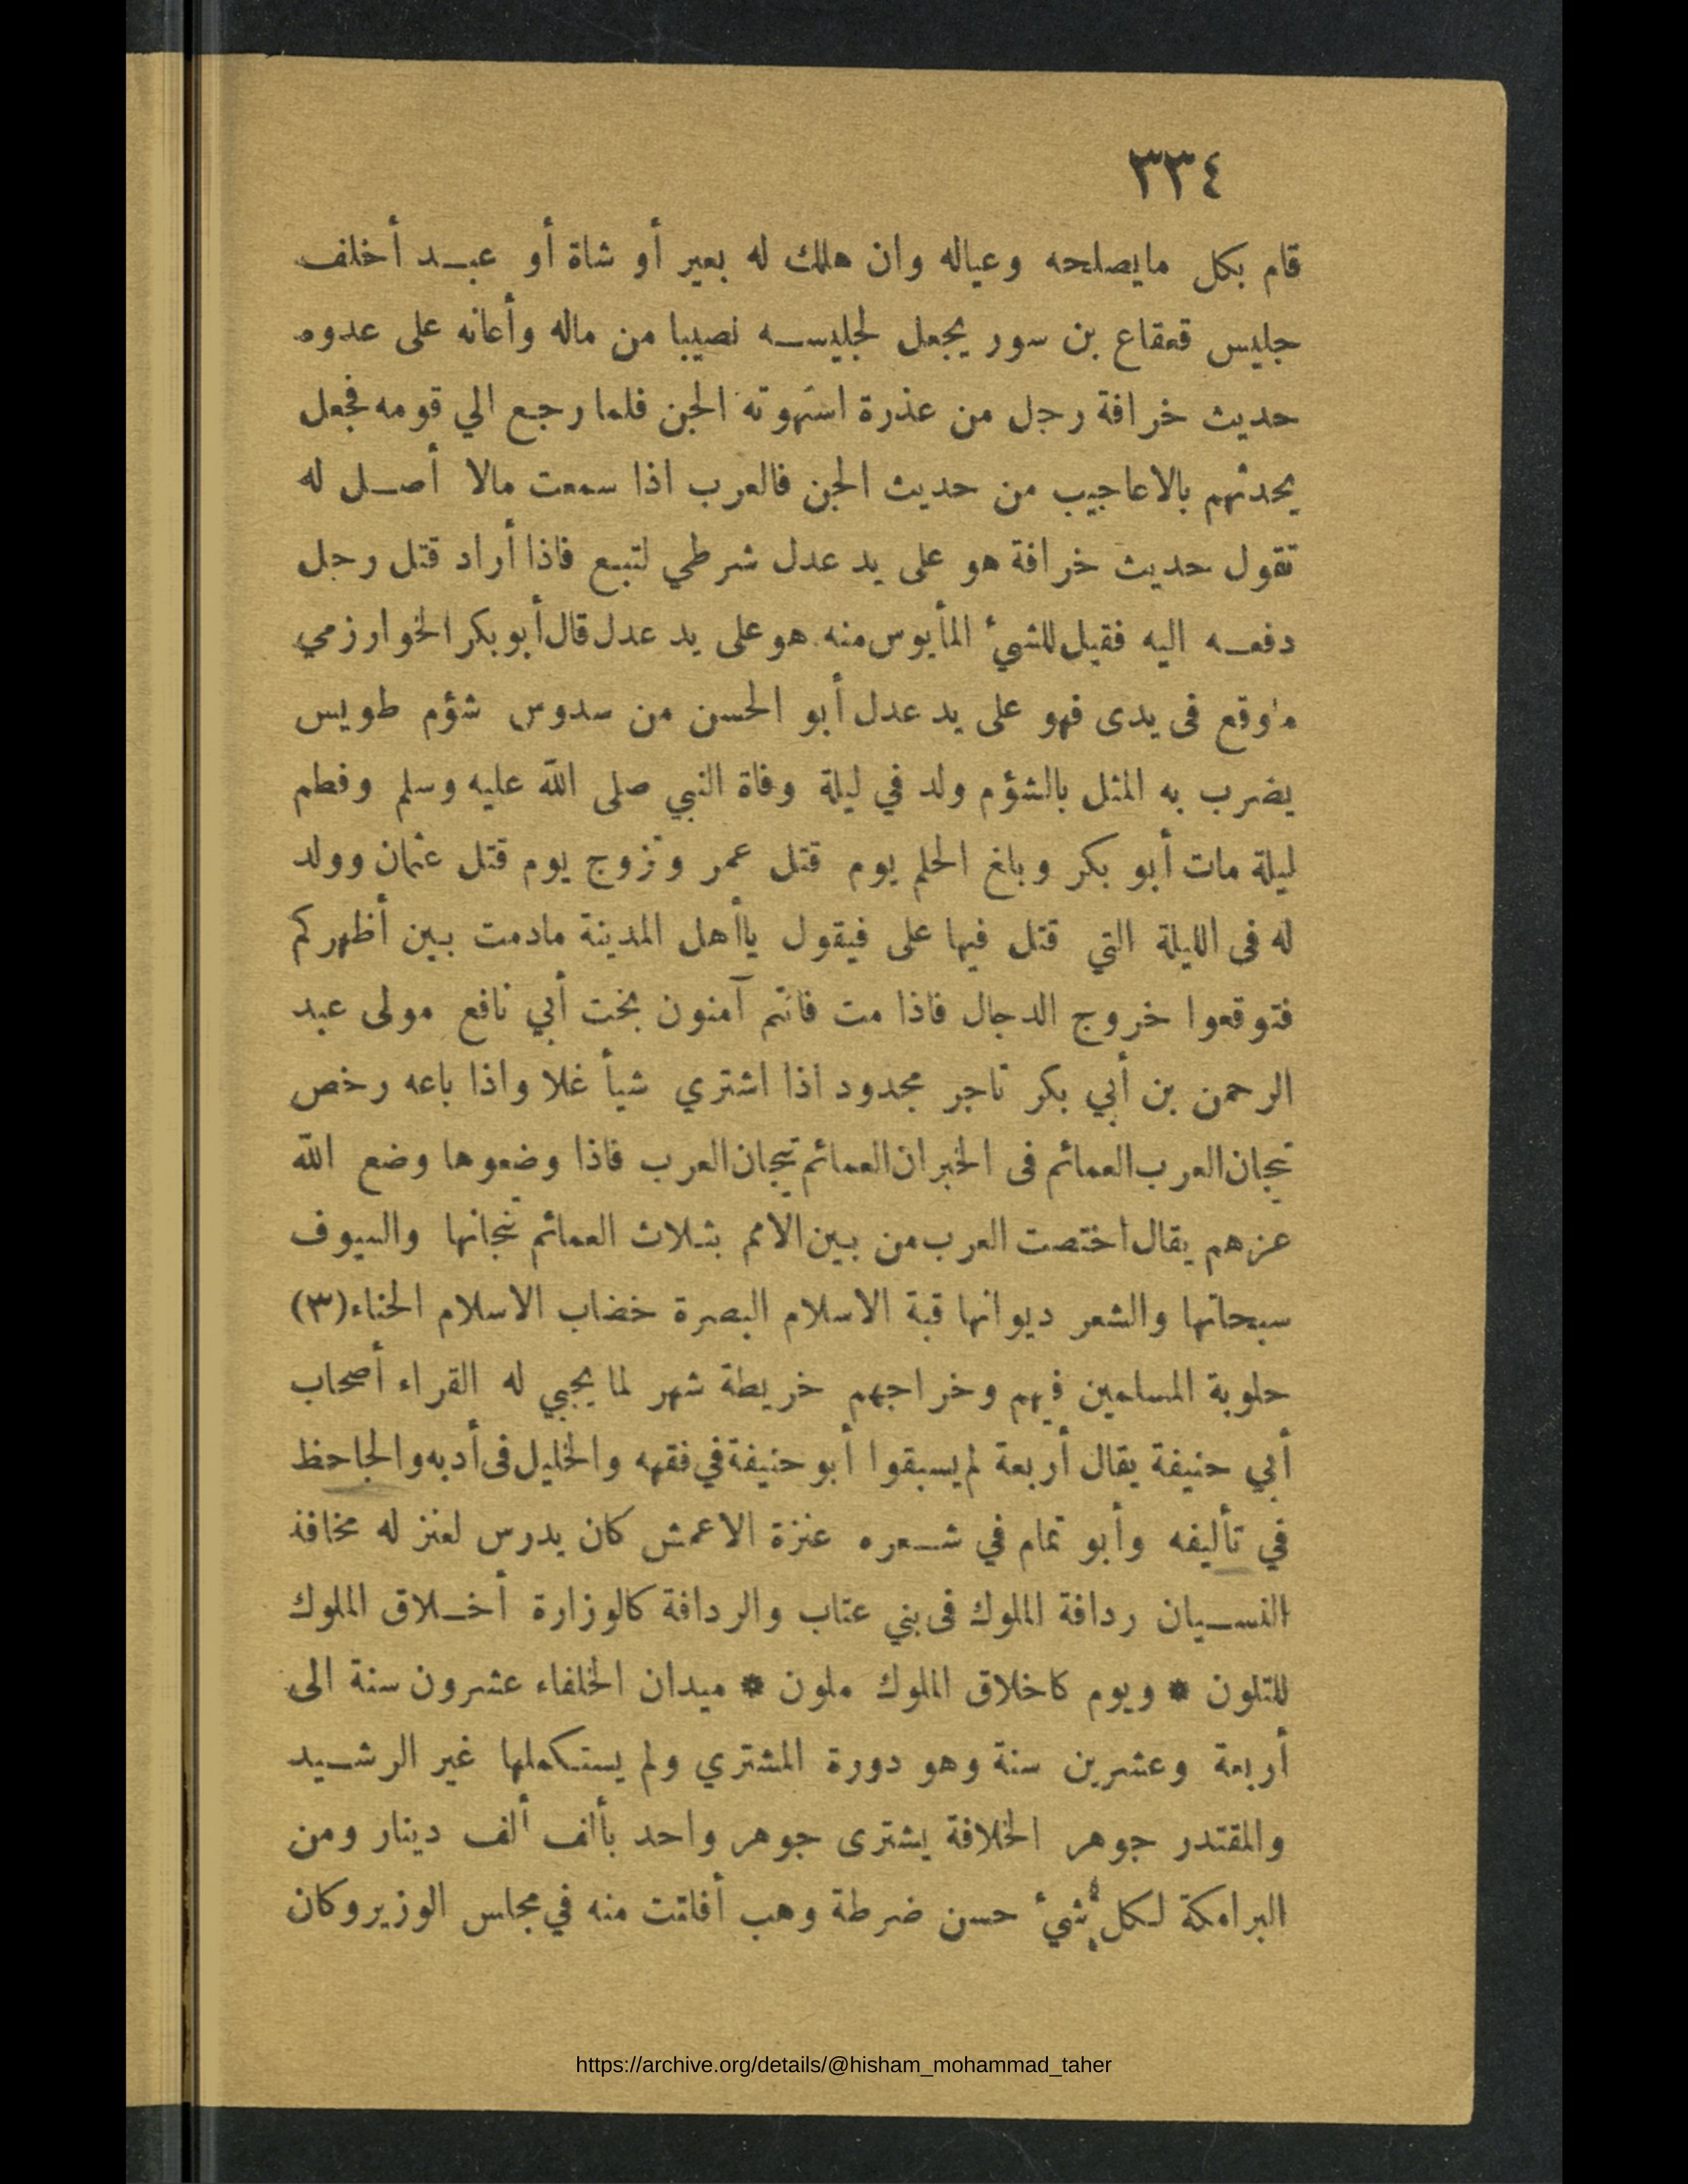 ٣٣٤
قام بكل مايصلحه وعياله وان هلك له بعير أو شاة أو عبد أخلف
جليس قعقاع بن سور يجعل لجليسه نصيبا من ماله وأعانه على عدوه
حديث خرافة رجل من عذرة استهوته الجن فلما رجع الي قومه فجعل
يحدثهم بالاعاجيب من حديث الجن فالعرب اذا سمعت مالا أصل له
تقول حديث خرافة هو على يد عدل شرطي لتبع فاذا أراد قتل رجل
دفعه اليه فقيل للشيء المأيوس منه هو على يد عدل قال أبو بكر الخوارزمي
ماوقع فى يدى فهو على يد عدل أبو الحسن من سدوس شؤم طويس
يضرب به المثل بالشؤم ولد في ليلة وفاة النبي صلى الله عليه وسلم وفطم
ليلة مات أبو بكر وبلغ الحلم يوم قتل عمر وتزوج يوم قتل عثمان وولد
له فى الليلة التي قتل فيها على فيقول ياأهل المدينة مادمت بين أظهركم
فتوقعوا خروج الدجال فاذا مت فانتم آمنون بخت أبي نافع مولى عبد
الرحمن بن أبي بكر تاجر مجدود اذا اشتري شيأ غلا واذا باعه رخص
تيجان العرب العمائم فى الخبر ان العمائم تيجان العرب فاذا وضعوها وضع الله
عزهم يقال اختصت العرب من بين الامم بثلاث العمائم تيجانها والسيوف
سبحاتها والشعر ديوانها قبة الاسلام البصرة خضاب الاسلام الحناء (٣)
حلوبة المسلمين فيهم وخراجهم خريطة شهر لما يجبي له القراء أصحاب
أبي حنيفة يقال أربعة لم يسبقوا أبو حنيفة في فقهه والخليل فى أدبه والجاحظ
في تأليفه وأبو تمام في شعره عنزة الاعمش كان يدرس لعنز له مخافة
النسيان ردافة الملوك فى بني عتاب والردافة كالوزارة أخلاق الملوك
للتلون * ويوم كاخلاق الملوك ملون * ميدان الخلفاء عشرون سنة الى
أربعة وعشرين سنة وهو دورة المشتري ولم يستكملها غير الرشيد
والمقتدر جوهر الخلافة يشترى جوهر واحد بألف ألف دينار ومن
البرامكة لكل شيء حسن ضرطة وهب أفلتت منه في مجلس الوزير وكان
https://archive.org/details/@hisham_mohammad_taher